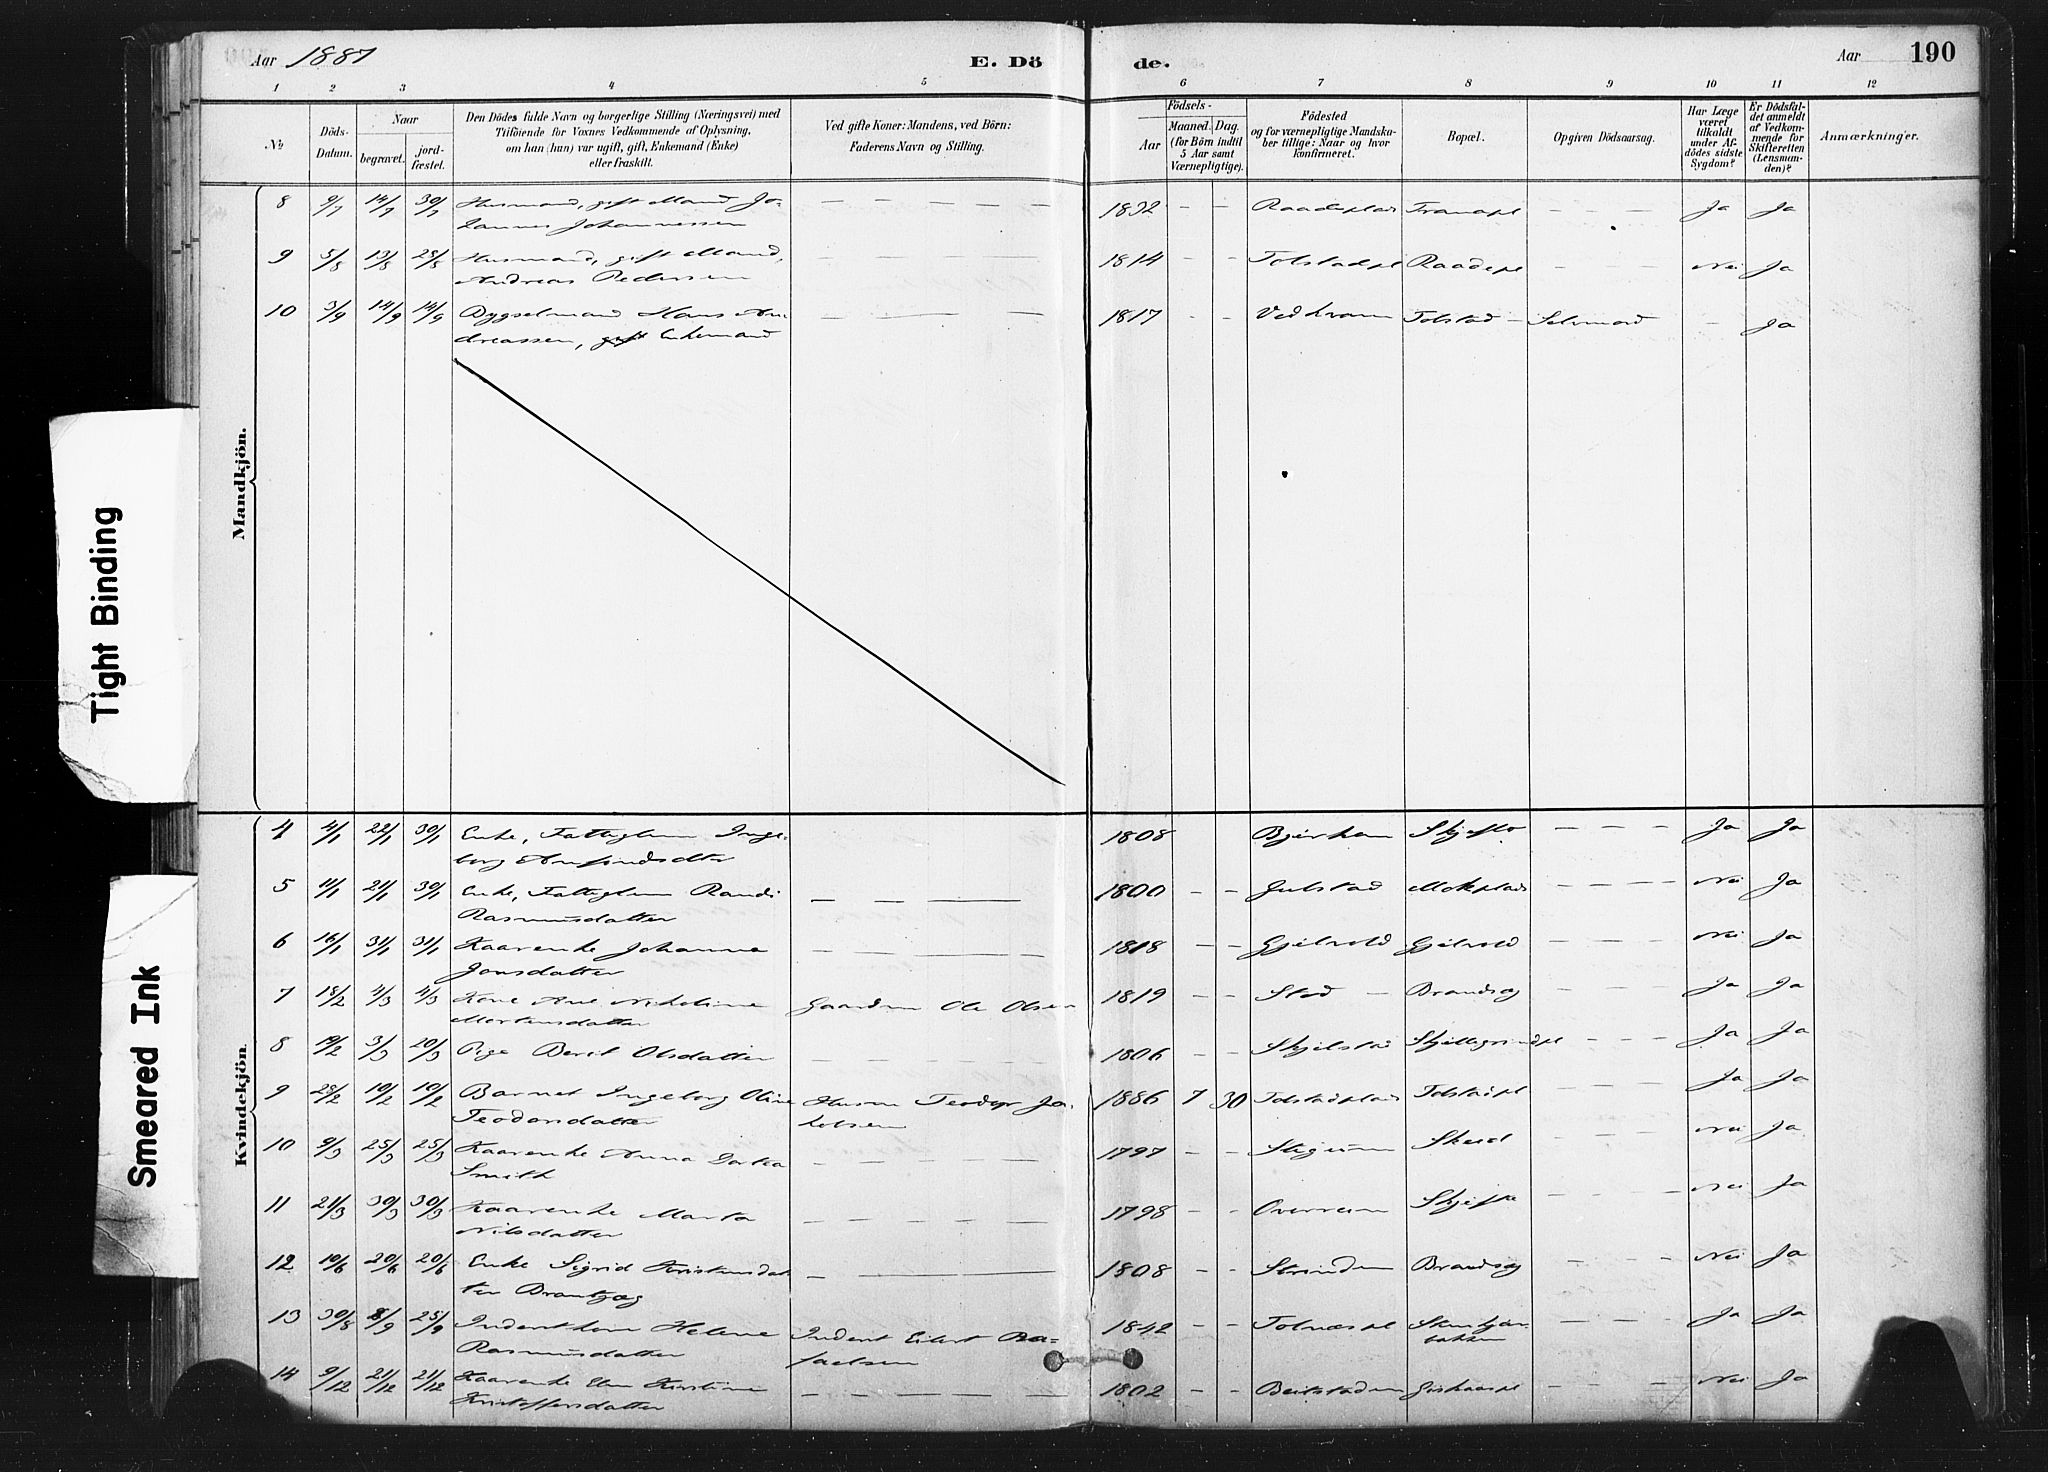 Aar 1887 E. Dö de. Aar 190
1 2 3 4 5 6 7 8 9 10 11 12
№
Döds-Datum.
Naar
begravet.
jord-fæstet.
Den Dödes fulde Navn og borgerlige Stilling (Næringsvei) med
Tilföiende for Voxnes Vedkommende af Oplysning,
om han (hun) var ugift, gift, Enkemand (Enke)
eller fraskilt.
Ved gifte Koner: Mandens, ved Börn:
Faderens Navn og Stilling.
Födsels-
Aar
Maaned. Dag.
(for Börn indtil
5 Aar samt
Værnepligtige).
Födested
og for værnepligtige Mandska-
ber tillige: Naar og hvor
konfirmeret.
Bopæl.
Opgiven Dödsaarsag.
Har Læge
været
tilkaldt
under Af-
dödes sidste
Sygdom?
Er Dödsfal-
det anmeldt
af Vedkom-
mende for
Skifteretten
(Lensman-
den)?
Anmærkninger.
Mandkjön.
8 9/7 14/7 30/7 Husmand, gift Mand Jo- — — — — — 1832 - - Raadeplads Tranapl — — — Ja Ja
hannes Johannessen
9 5/8 13/8 28/8 Husmand, gift Mand, — — — — 1814 - - Tolstadpl Raadepl — — — Nei Ja
Andreas Pedersen
10 3/9 14/9 14/9 Bygselmand Hans An- — — — 1817 - - Ved Kvam Tolstad — Selvmord - Ja
dreassen, gift Enkemand
Kvindekjön.
4 4/1 22/1 30/1 Enke, Fattiglem Inge- — — 1808 Skjefte — — — — Ja Ja
borg Arnfindsdtr
5 11/1 21/1 30/1 Enke, Fattiglem Randi — — — 1800 - - Julstad Mokplads — — — — Nei Ja
Rasmusdatter
6 16/1 31/1 31/1 Kaarenke Johanna — — — — 1818 - - Gjelvold Gjelvold — — — Nei Ja
Jonsdatter
7 18/2 4/3 4/3 Kone Ane Nikoline Gaardm Ole Olsen 1819 - - Stod — Brandseg — — — Ja Ja
Mortensdatter
8 19/2 3/3 20/3 Pige Berit Olsdatter — — — — — 1806 - - Skjelstad — — — Ja Ja
9 28/2 10/2 10/2 Barnet Ingeborg Oline Husm Teodor Ja- 1886 7 30 Tolstadplads Tolstadpl — — — Ja Ja
Teodorsdatter kobsen
10 9/3 25/3 25/3 Kaarenke Anna — — — — — 1797 - - Skeid — — — Nei Ja
Smith
11 21/3 30/3 30/3 Kaarenke Marta — — — — — 1798 - - Overrein Skjefte — — — Nei Ja
Nilsdatter
12 10/6 20/6 20/6 Enke Sigrid Kristensdat- — — — 1808 - - Strinden Brandseg — — — Nei Ja
ter
13 30/8 8/9 25/9 Helene Eilert Ra- 1842 - - — — — Ja Ja
Rasmusdatter faelsen
14 9/12 21/12 21/12 Kaarenke Elen Kirstine — — — — — 1802 - - Beitstaden — — — Nei Ja
Kristoffersdatter
Tight Binding
Smeared Ink